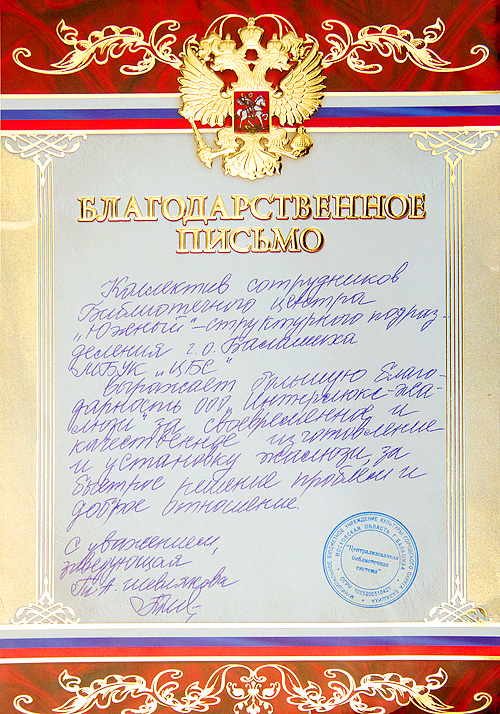 БЛАГОДАРСТВЕННОЕ
ПИСЬМО
Коллектив сотрудников
Библиотечного центра
„Южный"-структурного подраз-
деления г.о. Балашиха
МБУК „ЦБС"
выражает большую благо-
дарность ООО „Интерлюкс-жа-
люзи" за своевременное и
качественное изготовление
и установку жалюзи, за
быстрое решение проблем и
доброе отношение.
С уважением,
заведующая
"Централизованная
библиотечная
система"
МУНИЦИПАЛЬНОЕ БЮДЖЕТНОЕ УЧРЕЖДЕНИЕ КУЛЬТУРЫ ГОРОДСКОГО ОКРУГА БАЛАШИХА
МОСКОВСКАЯ ОБЛАСТЬ Г. БАЛАШИХА
ОГРН